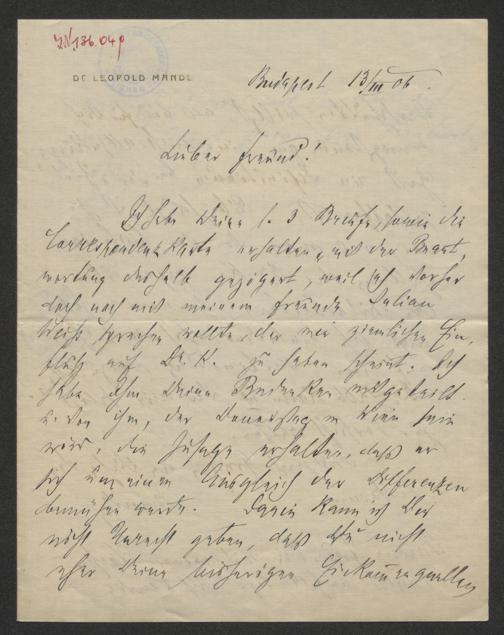 J.N. 136.049
DR LEOPOLD MANDL
Budapest 13/III 06.
Lieber Freund!
Ich habe Deine l. 3 Briefe, sowie die
Correspondenzkarte erhalten, mit der Beant-
wortung deshalb gezögert, weil ich vorher
doch noch mit meinem Freunde Julian
Weiss sprechen wollte, der nur ziemlichen Ein-
fluß auf Dr. K. zu haben scheint. Ich
habe ihm Deine Bedenken mitgeteilt
u. von ihm, der Donnerstag in Wien sein
wird, die Zusage erhalten, daß er
sich um einen Ausgleich der Differenzen
bemühen werde. Darin kann ich Dir
nicht Unrecht geben, daß Du nicht
eher Deine bisherigen Einkommenquellen